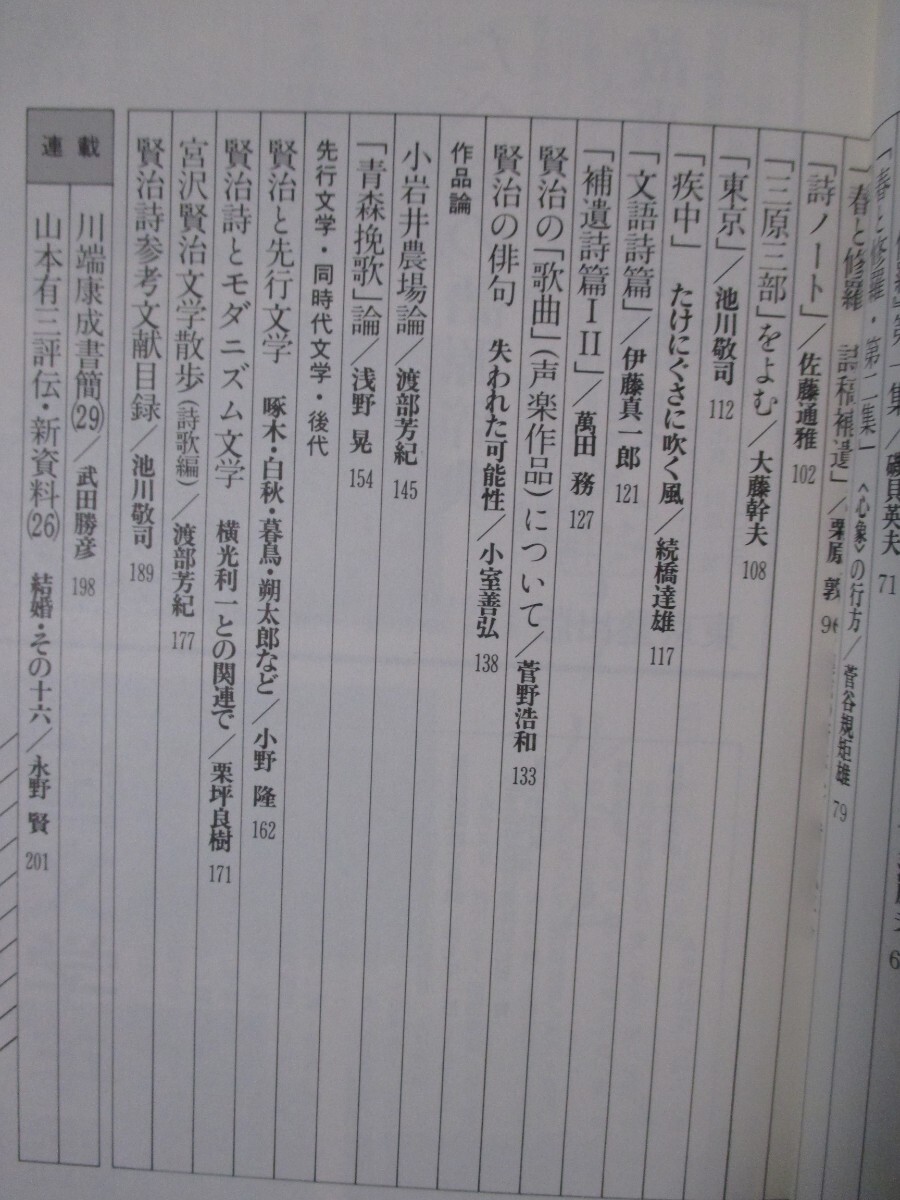 集／磯貝英夫 71
「春と修羅・第二集」〈心象〉の行方／菅谷規矩雄 79
「春と修羅 詩稿補遺」／栗原 敦 96
「詩ノート」／佐藤通雅 102
「三原三部」をよむ／大藤幹夫 108
「東京」／池川敬司 112
「疾中」 たけにぐさに吹く風／続橋達雄 117
「文語詩篇」／伊藤真一郎 121
「補遺詩篇ⅠⅡ」／萬田 務 127
賢治の「歌曲」（声楽作品）について／菅野浩和 133
賢治の俳句 失われた可能性／小室善弘 138
作品論
小岩井農場論／渡部芳紀 145
「青森挽歌」論／浅野 晃 154
先行文学・同時代文学・後代
賢治と先行文学 啄木・白秋・暮鳥・朔太郎など／小野 隆 162
賢治詩とモダニズム文学 横光利一との関連で／栗坪良樹 171
宮沢賢治文学散歩（詩歌編）／渡部芳紀 177
賢治詩参考文献目録／池川敬司 189
連載
川端康成書簡(29)／武田勝彦 198
山本有三評伝・新資料(26) 結婚・その十六／永野 賢 201